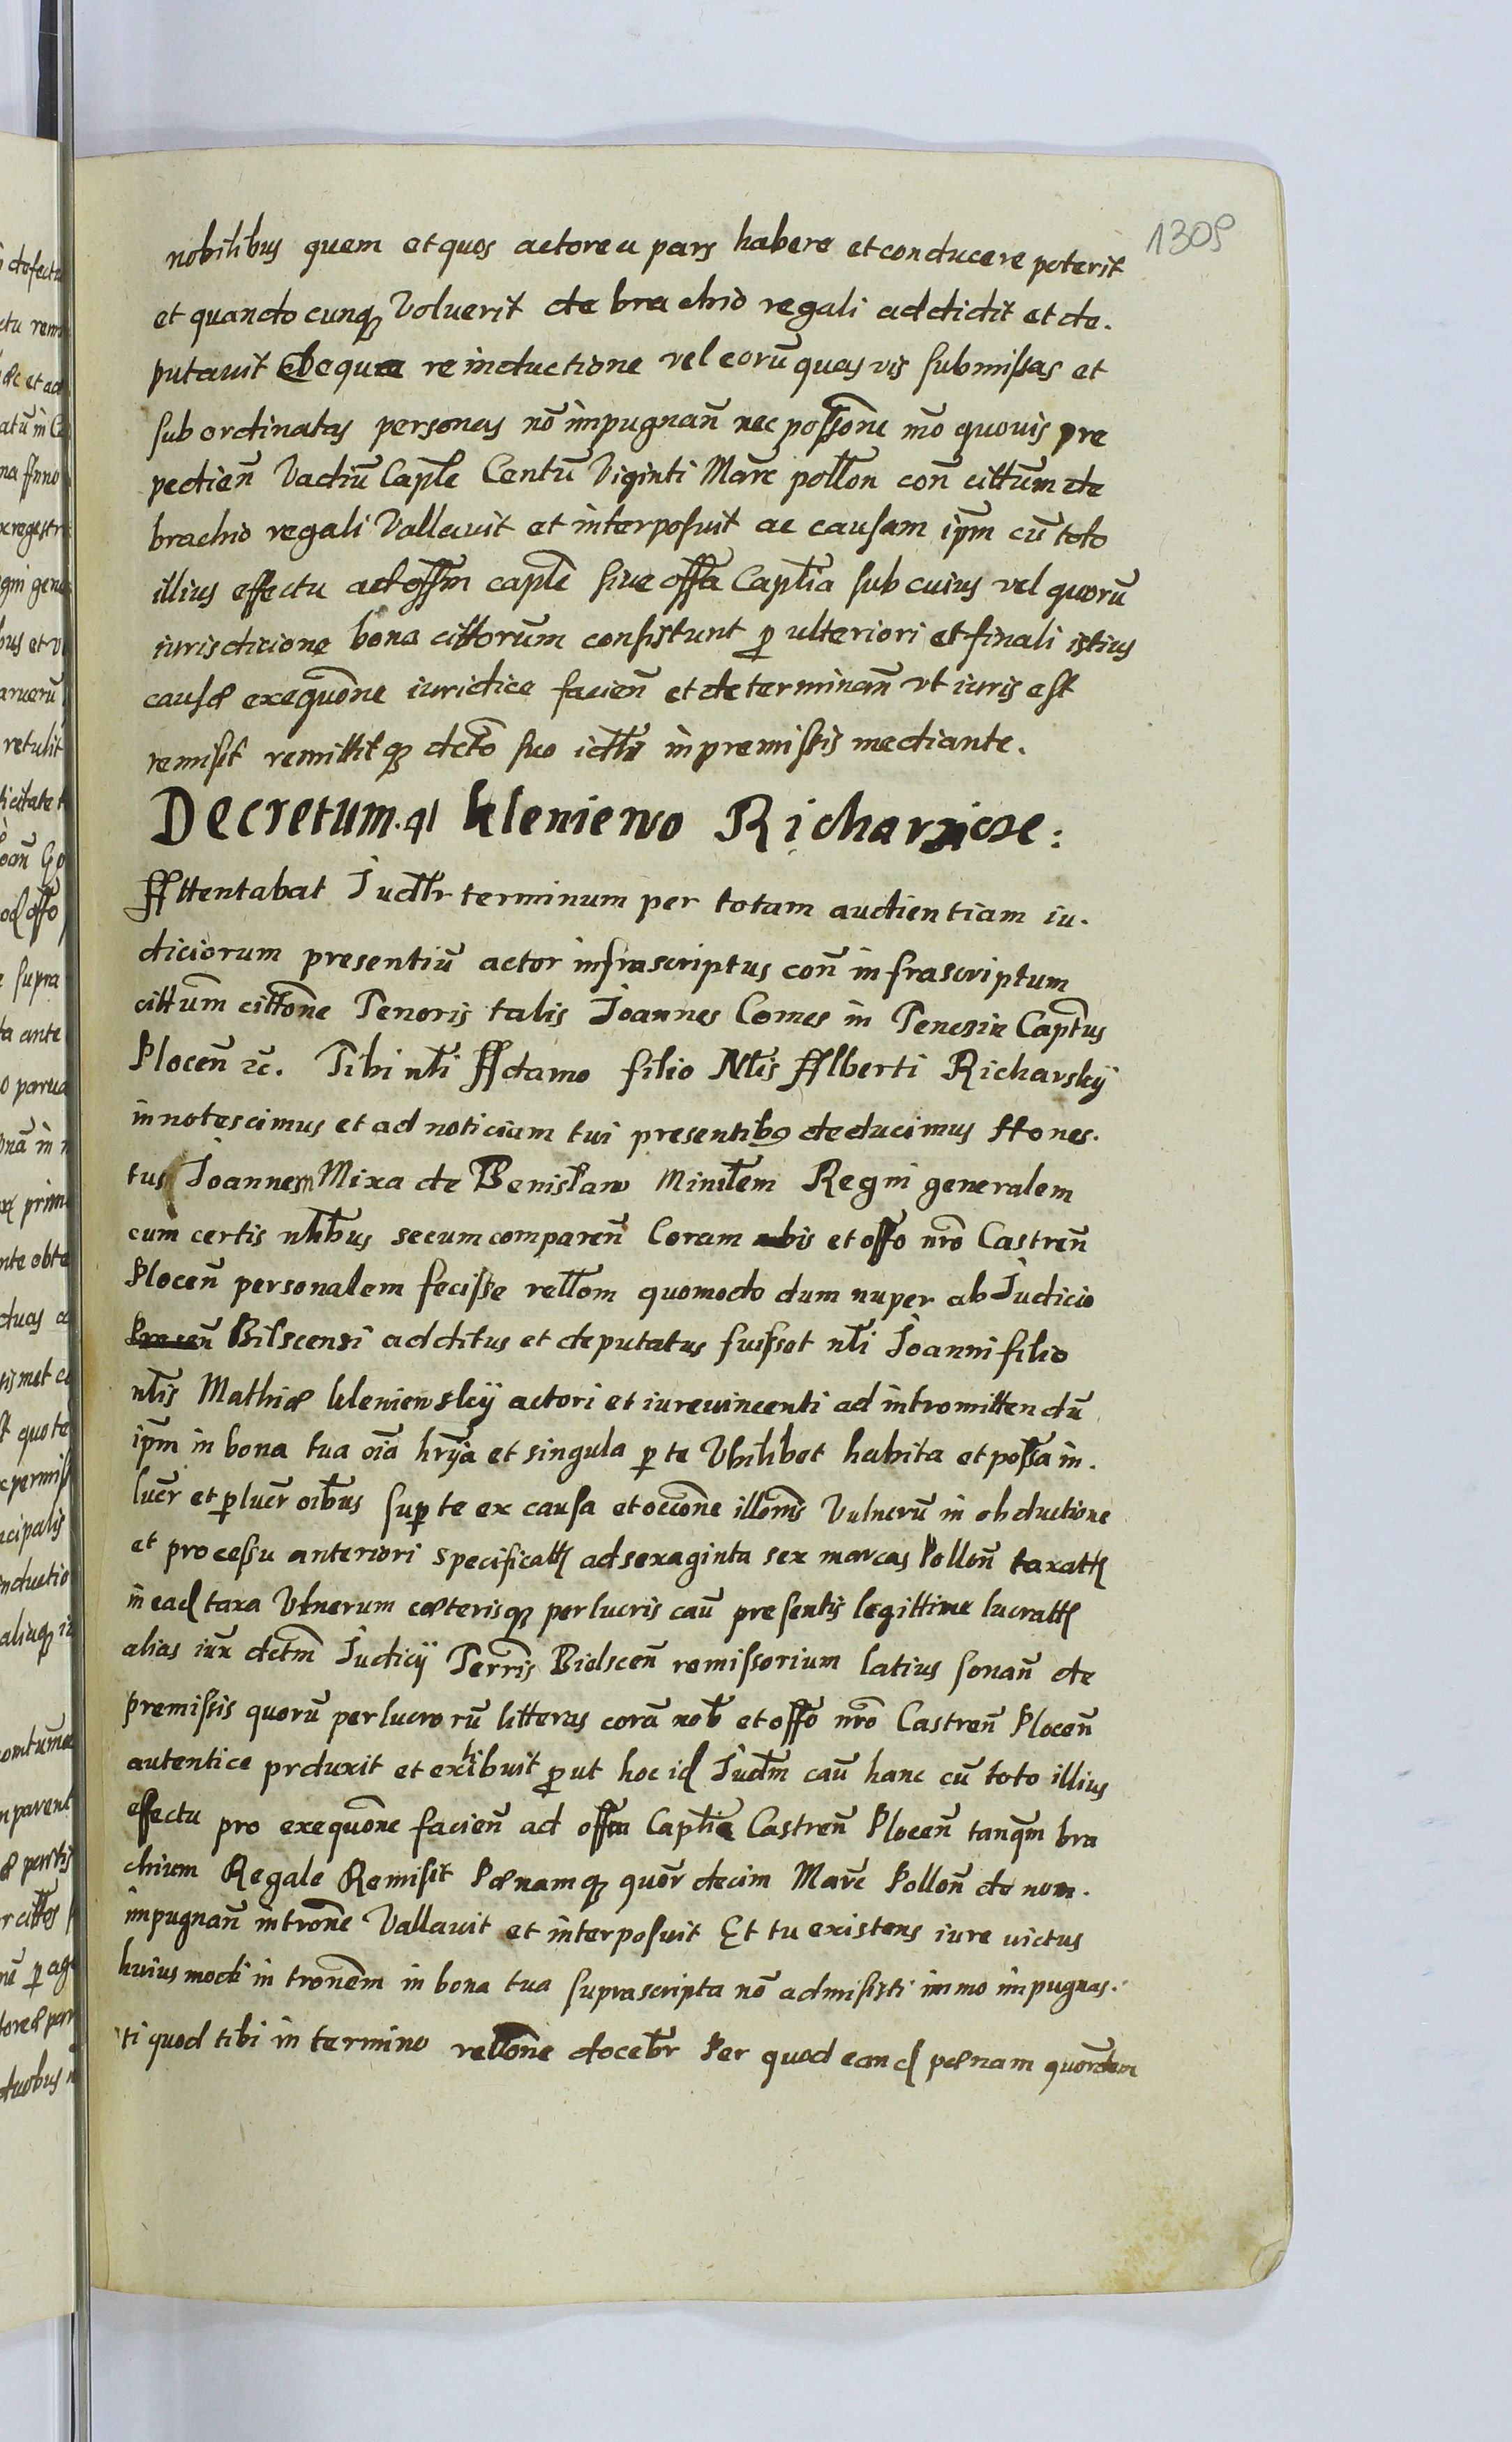 1309
nobilibus quem et quos actorea pars habere et conducere poterit
et quando cunq₃ Voluerit de brachio regali addidit et de.
putauit Dequa re inductione vel eorũ quas vis submissas et
sub ordinatas personas nõ impugnañ nec possone mõ quouis pre
pedieñ Vadiũ Caple Centũ Viginti Marc pollon coñ cittum de
brachio regali Vallauit et interposuit ac causam ipm cũ toto
illius effectu ad offm caple siue offa Captia sub cuius vel quorũ
iurisdicione bona cittorum consistunt p ulteriori et finali istius
causæ exequone iuridice facieñ et determinañ vt iuris est
remisit remittitq₃ dcto suo in premissis mediante.
Decretum. Kleniewo Richarzice:
Attentabat Judltr terminum per totam audientiam iu.
diciorum presentiũ actor infrascriptus coñ infrascriptum
cittum cittone Tenoris talis Joannes Comes in Tenczin Captus
Ploceñ &c. Tibi nli Adamo filio Nlis Alberti Richarskij
innotescimus et ad noticiam tui presentib9 deducimus Hones.
tus Joannem Mixa de Benisław Ministlem Regni generalem
cum certis nlibus secum compareñ Coram nobis et offo nro Castreñ
Ploceñ personalem fecisse rellom quomodo dum nuper ab Judicio
Bilscensi additus et deputatus fuisset nli Joanni filio
nlis Mathiæ Kleniewskij actori et iureuincenti ad intromittendũ
ipm in bona tua oia hrña et singula p te Vbilibet habita et possa in.
lucr et plucr oibus sup te ex causa et occone illoms Vulnerũ in obductione
et processu anteriori specificatt ad sexaginta sex marcas Polloñ taxatt
in ead taxa Vlnerum cæterisq₃ perlucris cau presentis legittime lucratt
alias iux dctm Judicij Terris Bielsceñ remissorium latius sonañ de
premissis quorũ perlucrorũ litteras corã nob et offo nro Castreñ Ploceñ
autentice prduxit et exhibuit put hoc id Judm cau hanc cũ toto illius
effectu pro exequone facieñ ad offm Captie Castreñ Ploceñ tanqm bra
chium Regale Remisit Pænamq₃ quor decim Marc Polloñ de non.
impugnañ introne Vallauit et interposuit Et tu existens iure victus
huius modi in tronem in bona tua suprascripta nõ admisisti immo impugnas.
ti quod tibi in termino rellone docebr Per quod eand pænam